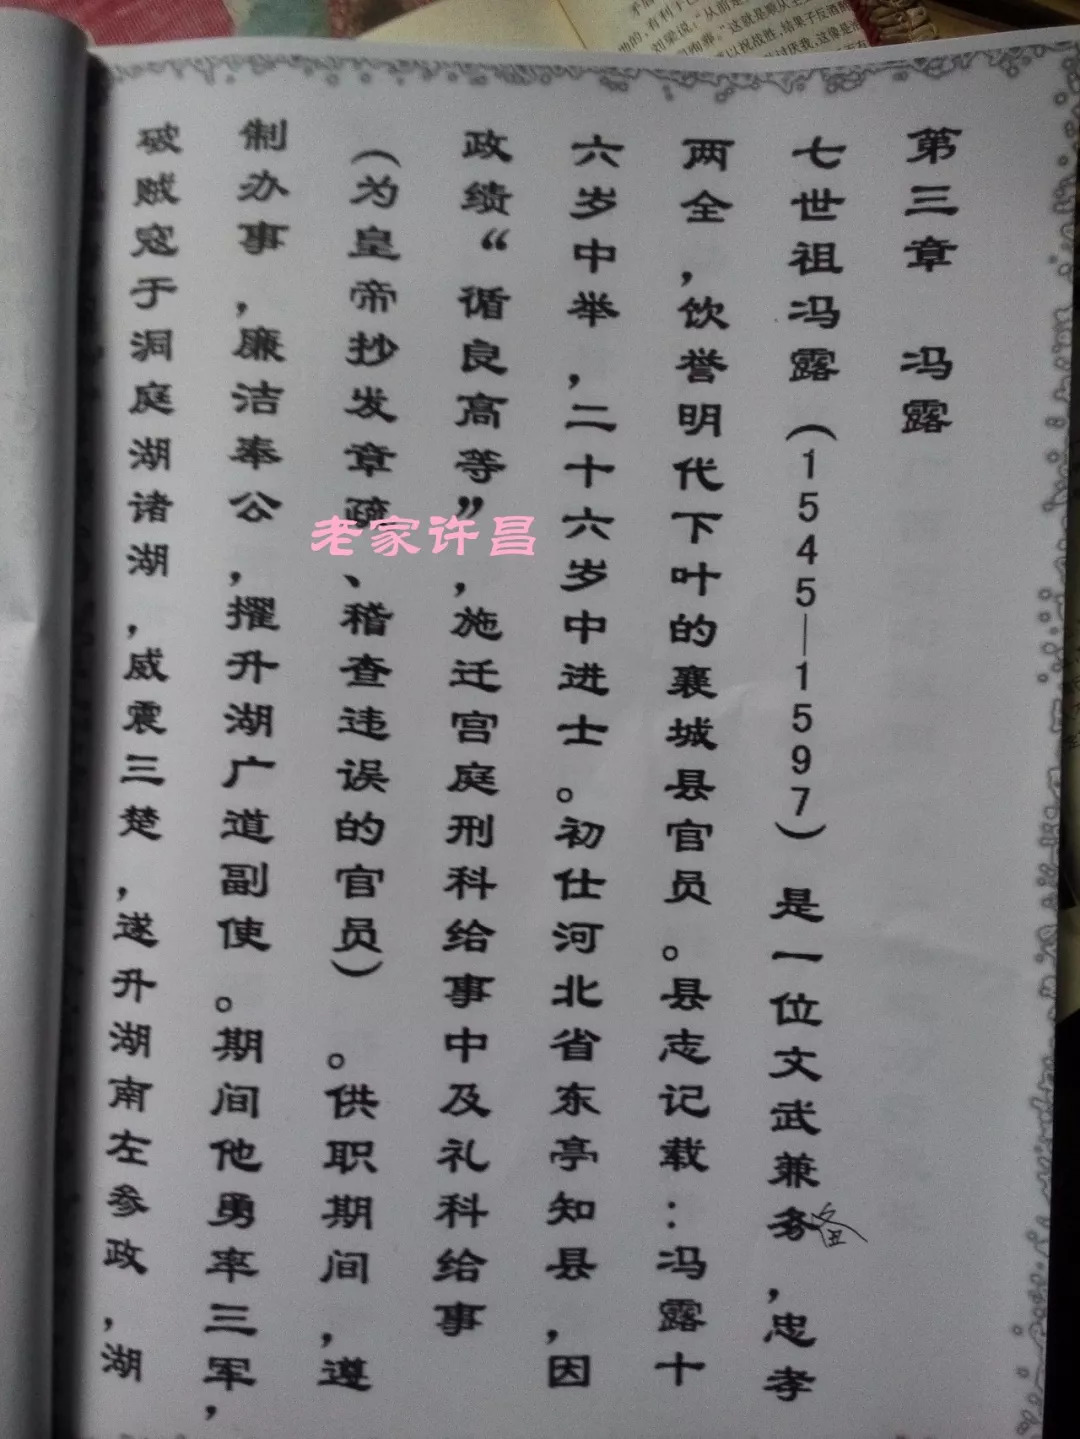 第三章 冯露
七世祖冯露（1545—1597）是一位文武兼务备，忠孝
两全，饮誉明代下叶的襄城县官员。县志记载：冯露十
六岁中举，二十六岁中进士。初仕河北省东亭知县，因
政绩“循良高等”，施迁宫庭刑科给事中及礼科给事
（为皇帝抄发章疏、稽查违误的官员）。供职期间，遵
制办事，廉洁奉公，擢升湖广道副使。期间他勇率三军，
破贼寇于洞庭湖诸湖，威震三楚，遂升湖南左参政，湖
老家许昌